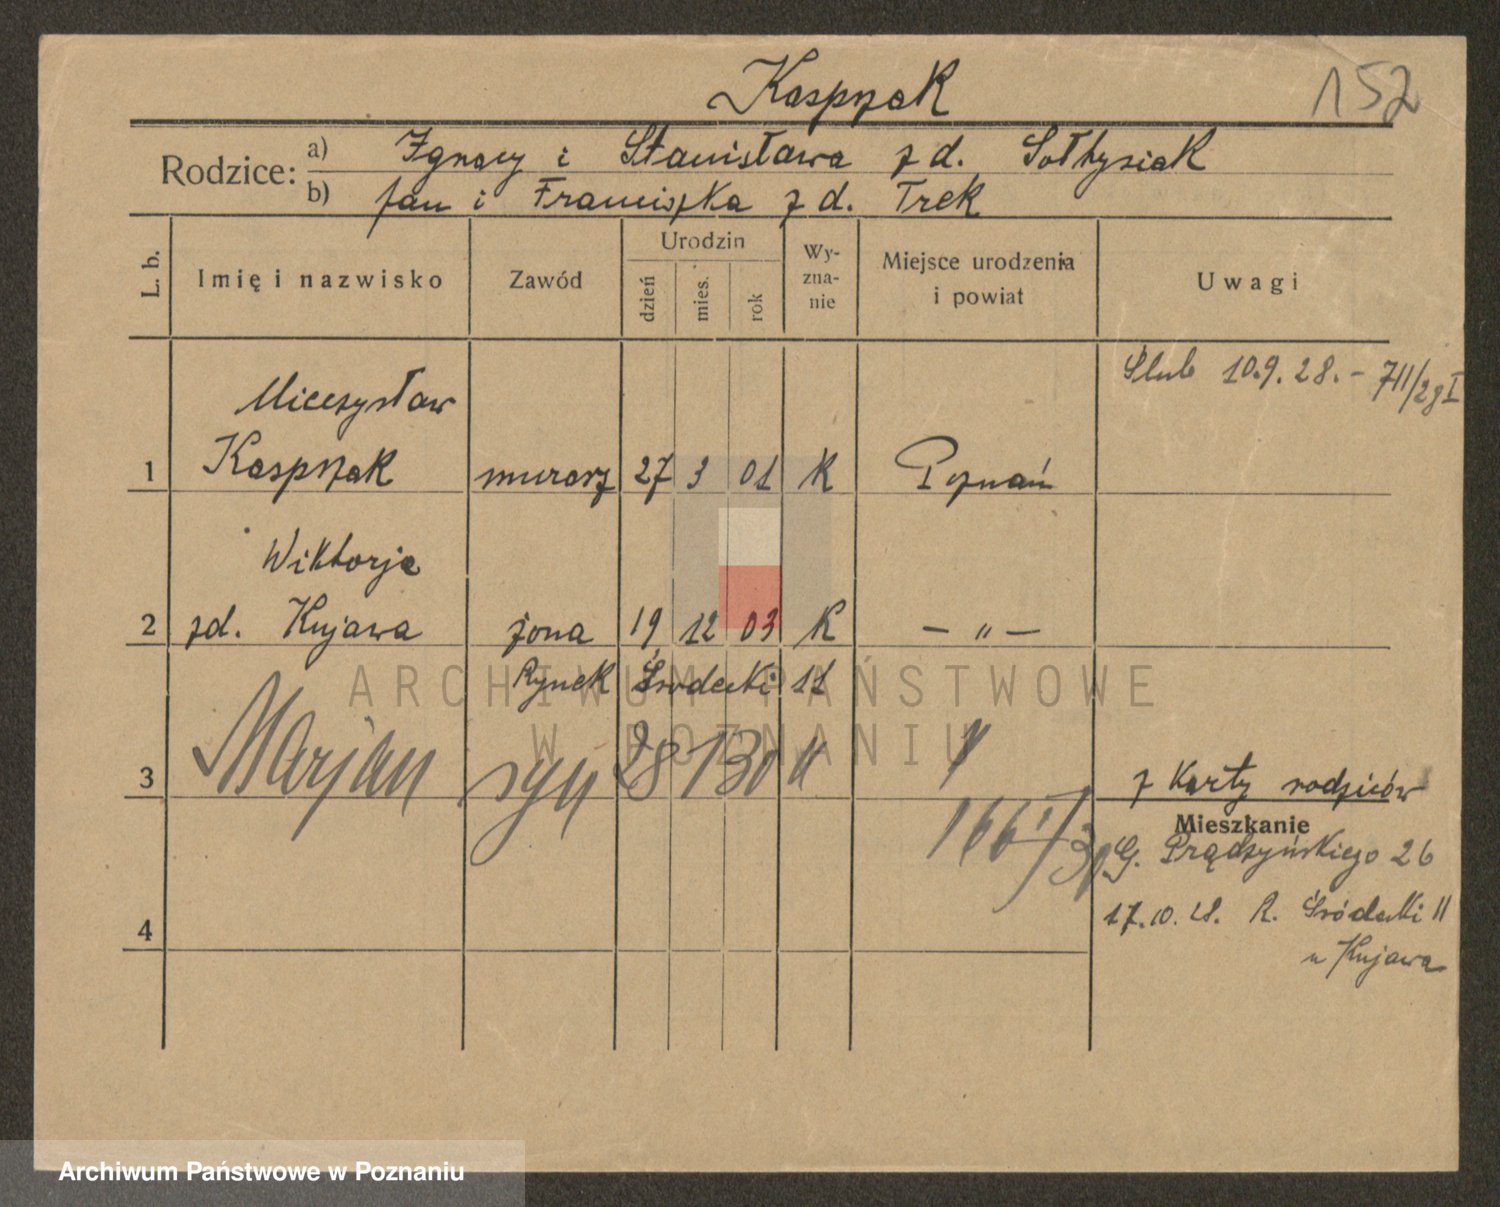 Kasprzak
152
Rodzice: a) Ignacy i Stanisława z d. Sołtysiak
b) Jan i Franciszka z d. Trek
L. b. Imię i nazwisko Zawód Urodzin dzień mies. rok Wy-zna-nie Miejsce urodzenia i powiat Uwagi
Ślub 10.9.28. - 711/28 I
Mieczysław
1 Kasprzak murarz 27 3 01 K Poznań
Wiktorja
2 zd. Kujawa żona 19 12 03 K — " —
Rynek Śródecki 11
3 Marjan syn 28 1 30 K "
z Karty rodziców
Mieszkanie
G. Prądzyńskiego 26
17.10.28. R. Śródecki 11
4
u Kujawa
ARCHIWUM PAŃSTWOWE
W POZNANIU
Archiwum Państwowe w Poznaniu